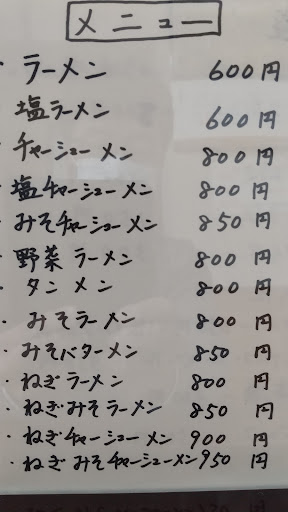 メニュー
・ラーメン 600円
・塩ラーメン 600円
・チャーシューメン 800円
・塩チャーシューメン 800円
・みそチャーシューメン 850円
・野菜ラーメン 800円
・タンメン 800円
・みそラーメン 800円
・みそバターメン 850円
・ねぎラーメン 800円
・ねぎみそラーメン 850円
・ねぎチャーシューメン 900円
・ねぎみそチャーシューメン 950円